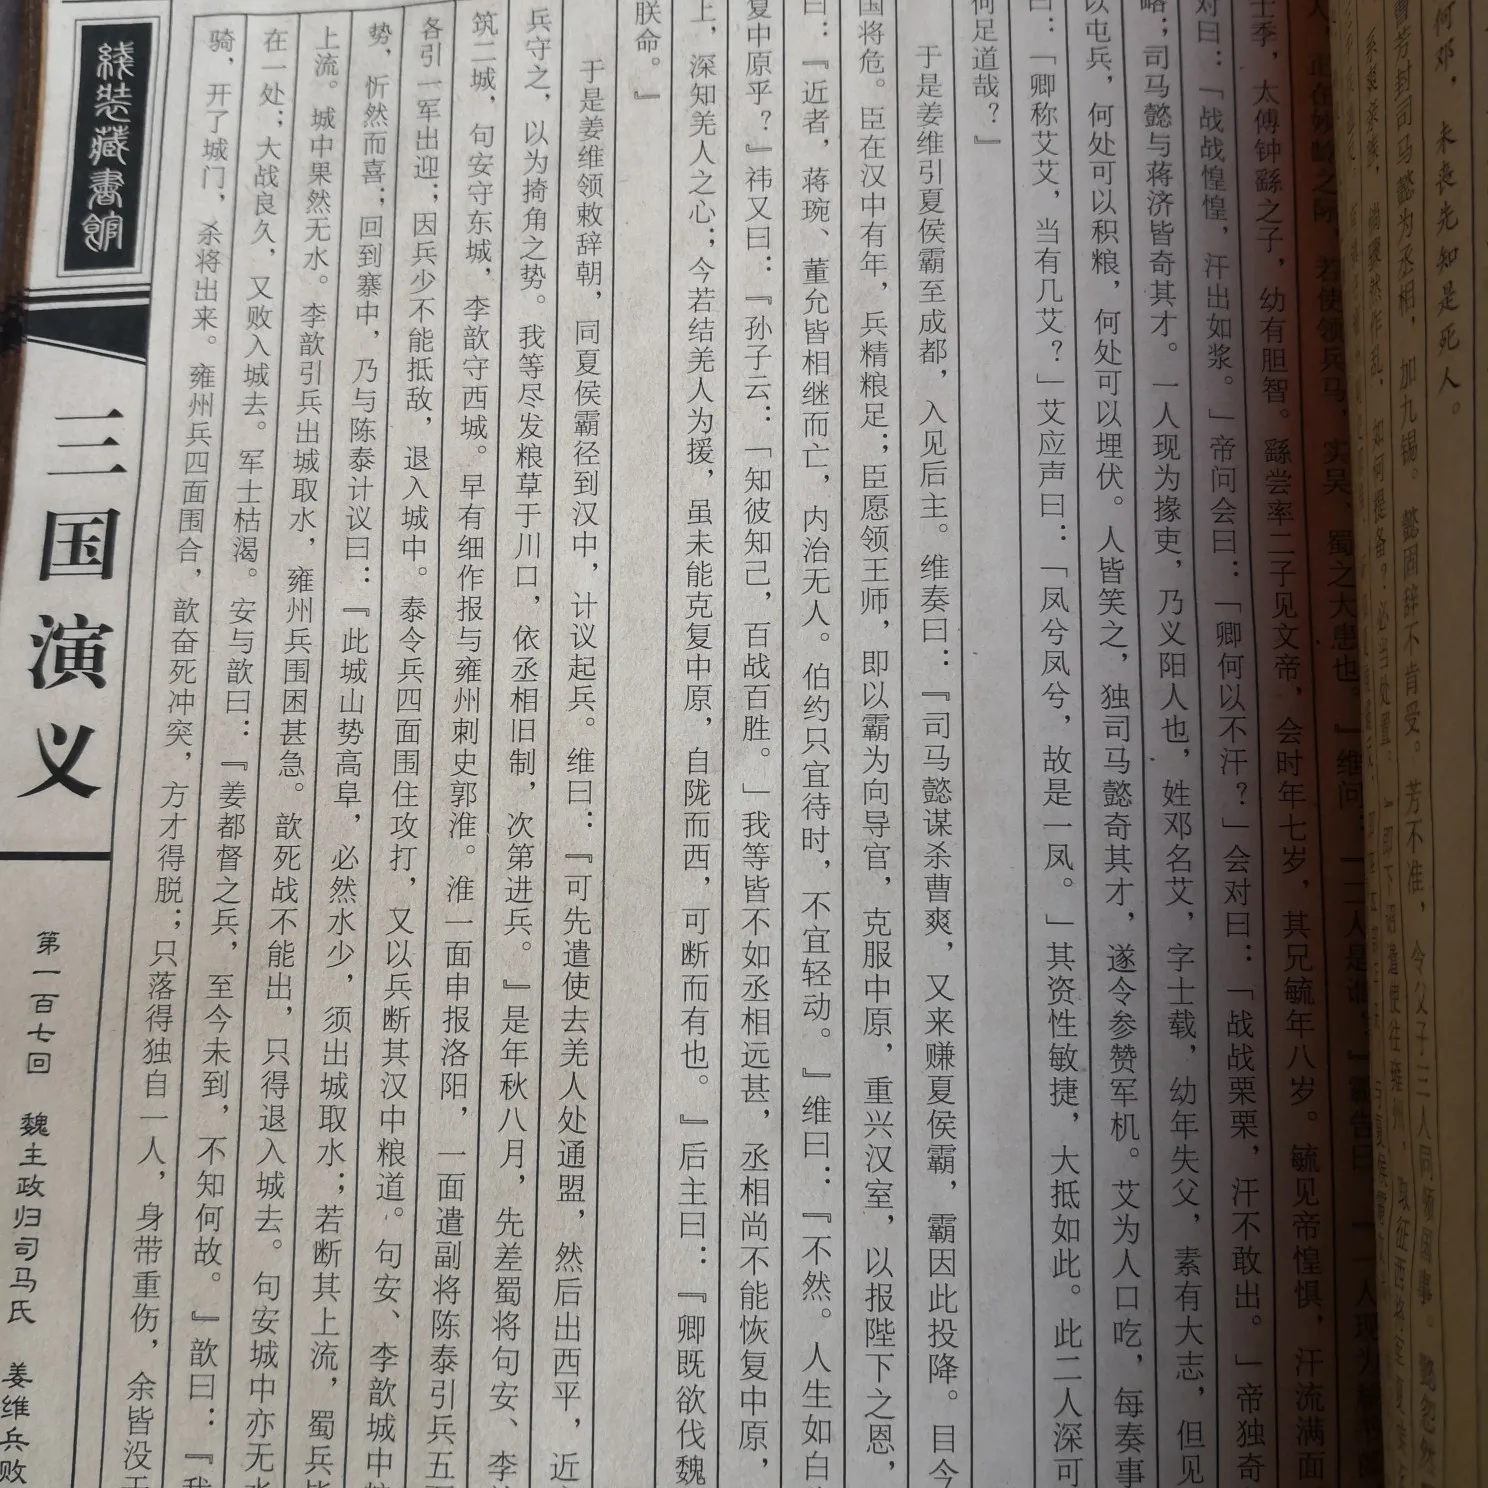 何邓，未丧先知是死人。
曹芳封司马懿为丞相，加九锡。懿固辞不肯受。芳不准，令父子三人同领国事。
士季，太傅钟繇之子，幼有胆智。繇尝率二子见文帝，会时年七岁，其兄毓年八岁。毓见帝惶惧，汗流满面
对曰：「战战惶惶，汗出如浆。」帝问会曰：「卿何以不汗？」会对曰：「战战栗栗，汗不敢出。」帝独奇
略；司马懿与蒋济皆奇其才。一人现为掾吏，乃义阳人也，姓邓名艾，字士载，幼年失父，素有大志，但见
以屯兵，何处可以积粮，何处可以埋伏。人皆笑之，独司马懿奇其才，遂令参赞军机。艾为人口吃，每奏事
曰：「卿称艾艾，当有几艾？」艾应声曰：「凤兮凤兮，故是一凤。」其资性敏捷，大抵如此。此二人深可
何足道哉？』
于是姜维引夏侯霸至成都，入见后主。维奏曰：『司马懿谋杀曹爽，又来赚夏侯霸，霸因此投降。目今
国将危。臣在汉中有年，兵精粮足；臣愿领王师，即以霸为向导官，克服中原，重兴汉室，以报陛下之恩，
曰：『近者，蒋琬、董允皆相继而亡，内治无人。伯约只宜待时，不宜轻动。』维曰：『不然。人生如白
复中原乎？』祎又曰：『孙子云：「知彼知己，百战百胜。」我等皆不如丞相远甚，丞相尚不能恢复中原，
上，深知羌人之心；今若结羌人为援，虽未能克复中原，自陇而西，可断而有也。』后主曰：『卿既欲伐魏
朕命。』
于是姜维领敕辞朝，同夏侯霸径到汉中，计议起兵。维曰：『可先遣使去羌人处通盟，然后出西平，近
兵守之，以为掎角之势。我等尽发粮草于川口，依丞相旧制，次第进兵。』是年秋八月，先差蜀将句安、李
筑二城，句安守东城，李歆守西城。早有细作报与雍州刺史郭淮。淮一面申报洛阳，一面遣副将陈泰引兵五
各引一军出迎；因兵少不能抵敌，退入城中。泰令兵四面围住攻打，又以兵断其汉中粮道。句安、李歆城中
势，忻然而喜；回到寨中，乃与陈泰计议曰：『此城山势高阜，必然水少，须出城取水；若断其上流，蜀兵
上流。城中果然无水。李歆引兵出城取水，雍州兵围困甚急。歆死战不能出，只得退入城去。句安城中亦无水
在一处；大战良久，又败入城去。军士枯渴。安与歆曰：『姜都督之兵，至今未到，不知何故。』歆曰：『我
骑，开了城门，杀将出来。雍州兵四面围合，歆奋死冲突，方才得脱；只落得独自一人，身带重伤，余皆没
线装藏书馆
三国演义
第一百七回 魏主政归司马氏 姜维兵败